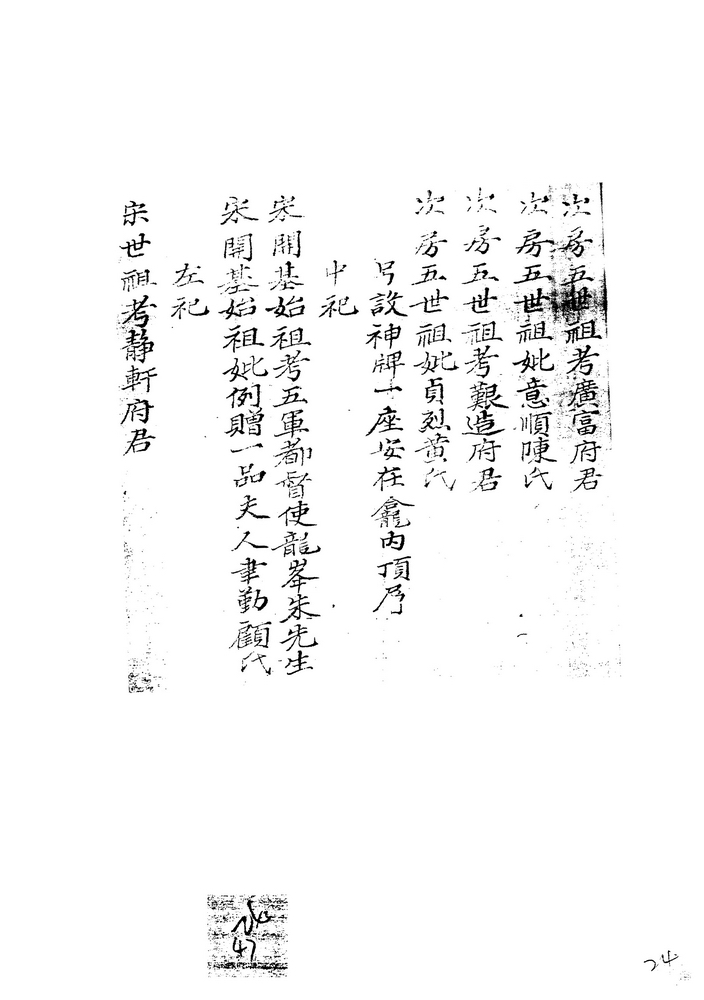 次房五世祖考廣富府君
次房五世祖妣意順陳氏
次房五世祖考艱造府君
次房五世祖妣貞烈黄氏
另設神牌一座安在龕内頂
中祀
宋開基始祖考五軍都督使龍峯朱先生
宋開基始祖妣例贈一品夫人聿勤顧氏
左祀
宋世祖考静軒府君
47
24